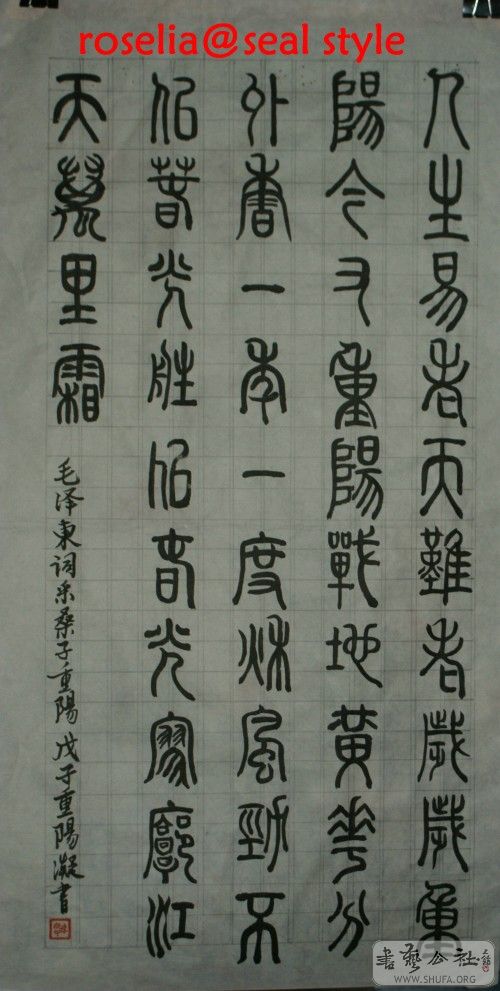 roselia@seal style
人生易老天難老歲歲重
陽今又重陽戰地黃花分
外香一年一度秋風勁不
似春光勝似春光寥廓江
天萬里霜
毛泽東词采桑子重陽 戊子重陽凝書
書藝公社
WWW.SHUFA.ORG